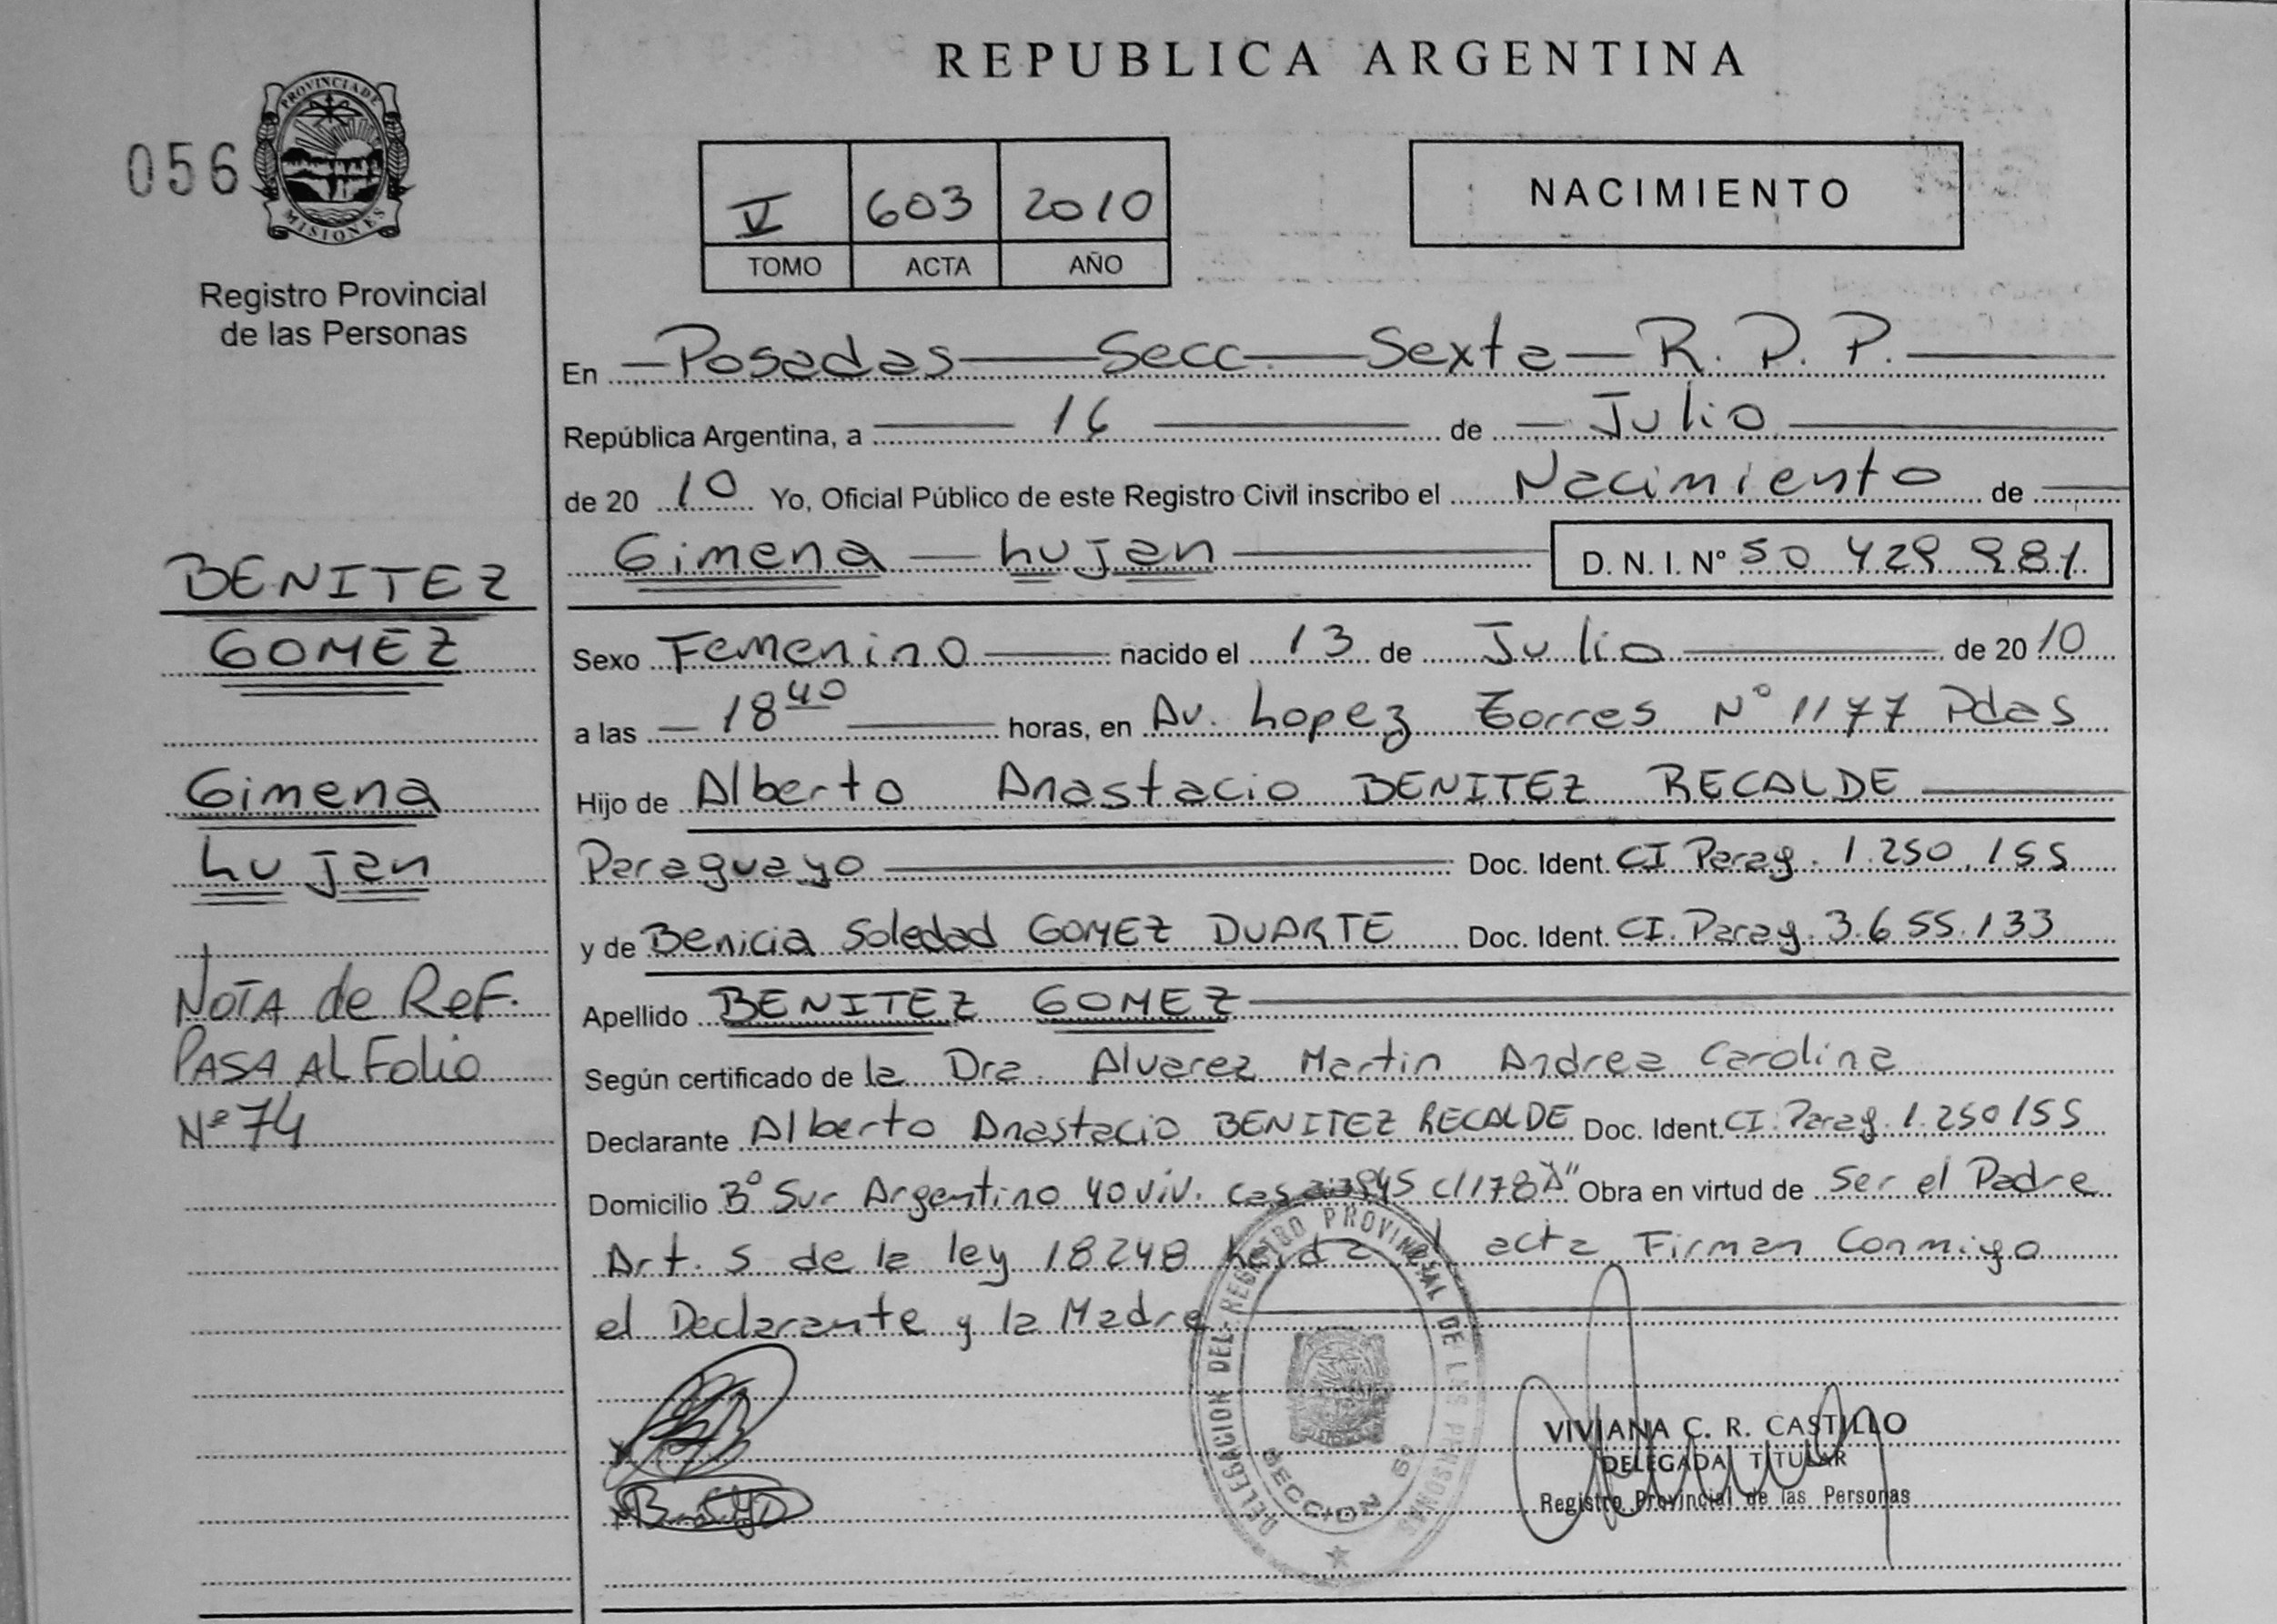 REPUBLICA ARGENTINA
056
PROVINCIA DE
MISIONES
Registro Provincial
de las Personas
V 603 2010
TOMO ACTA AÑO
NACIMIENTO
En Posadas Secc. Sexta R. P. P.
República Argentina, a 16 de Julio
de 20 10 Yo, Oficial Público de este Registro Civil inscribo el Nacimiento de
Gimena Lujan D. N. I. Nº 50 429 981
BENITEZ
GOMEZ
Gimena
Lujan
NOTA de REF.
PASA AL Folio
Nº 74
Sexo Femenino nacido el 13 de Julio de 20 10
a las 18 40 horas, en Av. Lopez Torres Nº 1177 Pdas
Hijo de Alberto Anastacio BENITEZ RECALDE
Paraguayo Doc. Ident. CI Parag. 1.250.155
y de Benicia Soledad GOMEZ DUARTE Doc. Ident. CI. Parag. 3.655.133
Apellido BENITEZ GOMEZ
Según certificado de la Dra. Alvarez Martin Andrea Carolina
Declarante Alberto Anastacio BENITEZ RECALDE Doc. Ident. CI. Parag. 1.250155
Domicilio Bº Sur Argentino 40 viv. Casa c/178 "A" Obra en virtud de Ser el Padre
Art. 5 de la ley 18248 Leida el acta Firman Conmigo
el Declarante y la Madre
DELEGACION DEL REGISTRO PROVINCIAL DE LAS PERSONAS
SECCION 6º
VIVIANA C. R. CASTILLO
DELEGADA TITULAR
Registro Provincial de las Personas